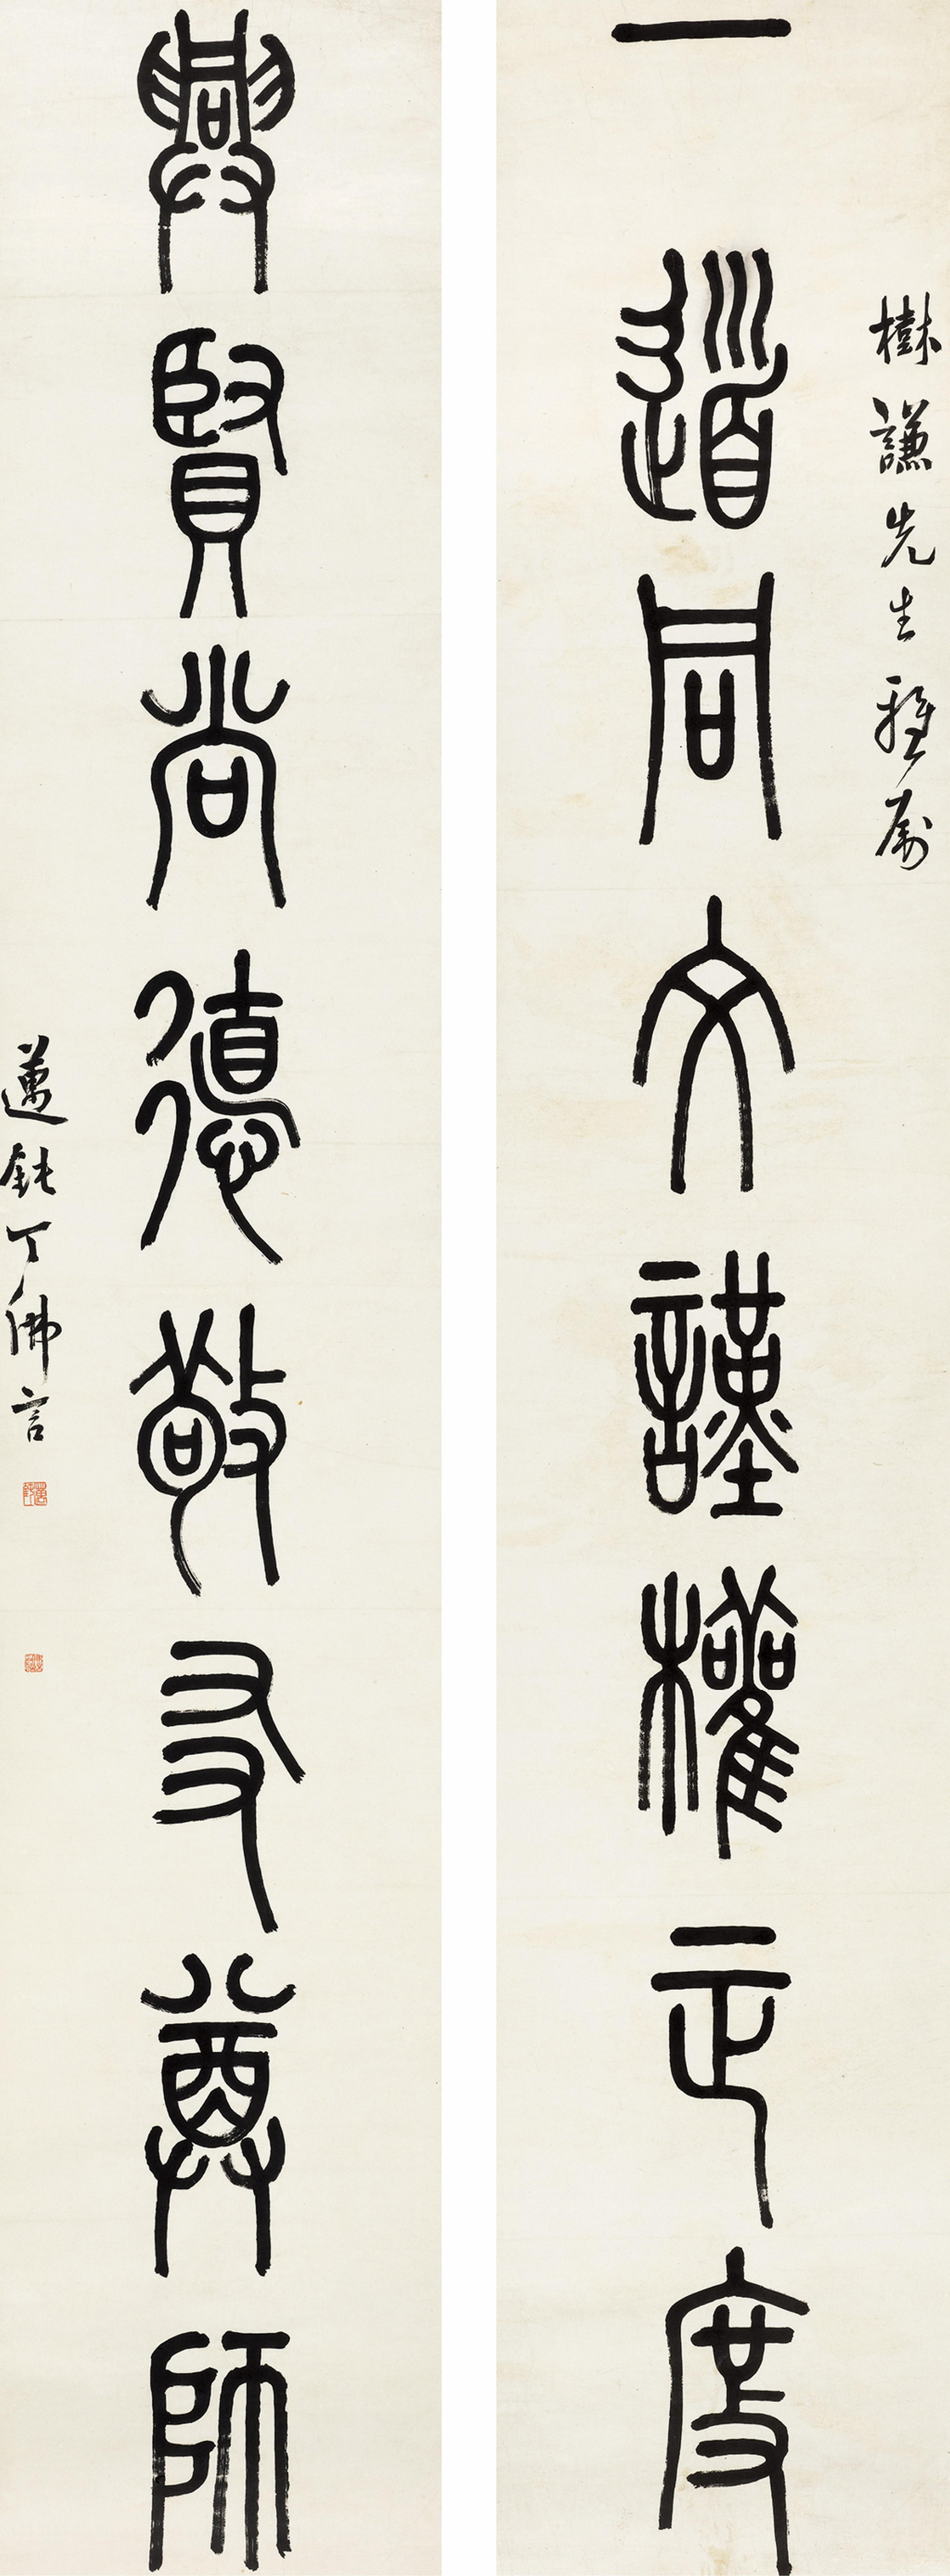 樹謙先生雅屬
一道同文謹權正度
興賢尚德敬友尊師
邁鈍丁佛言